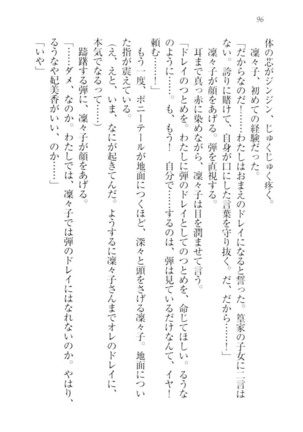 96
体の芯がジンジン、じゅくじゅく疼く。
凜々子、初めての経験だった。
「だからなのだ……わたしはおまえのドレイになると誓った。篁家の子女に二言は
ない。誇りに賭けて、一度口にした言葉を守り抜く。だ、だから……！」
凜々子が顔をあげる。弾を直視する。
耳まで真っ赤に染めながら、凜々子は目を潤ませて言う。
「ドレイのつとめを、わたしに弾のドレイのつとめを、命じてほしい。るうな
のように……。も、もう！　自分で……するのは、弾は見ているだけなんて、イヤ！
頼む……」
もう一度、ポニーテールが地面につくほど、深々と頭をさげる凜々子。地面につい
た指が震えている。
（え、えと、いま、なにが起きてんだ。ようするに凜々子さんまでオレのドレイに、
本気でなるって……）
躊躇する弾に、凜々子が顔をあげる。
「……ダメ、なのか。わたしでは、凜々子では弾のドレイにはなれないのか。やはり、
るうなや妃美香がいい、のか……」
「いや」